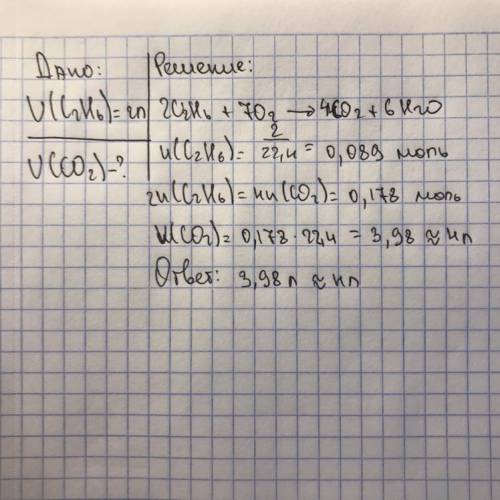 Дано:
V(C₂H₆)=2л
V(CO₂)-?
Решение:
2C₂H₆ + 7O₂ → 4CO₂ + 6H₂O
n(C₂H₆)= 2/22,4 = 0,089 моль
2n(C₂H₆)=4n(CO₂)= 0,178 моль
V(CO₂)= 0,178·22,4 = 3,98 ≈ 4л
Ответ: 3,98л ≈ 4л